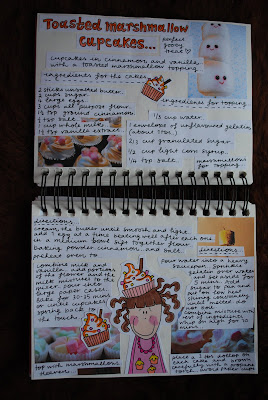 Toasted marshmallow
cupcakes...
perfect
gooey
treat
cupcakes in cinnamon and vanilla
with a toasted marshmallow topping
ingredients for the cakes
2 sticks unsalted butter
2 cups sugar
4 large eggs
3 cups all purpose flour
1½ tsp ground cinnamon
1 tsp salt
1 cup whole milk
1 tsp vanilla extract
ingredients for topping
1/3 cup water
1 envelope of unflavoured gelatin
(about 1 Tbs)
2/3 cup granulated sugar
1/2 cup light corn syrup
1/4 tsp salt
marshmallows
for topping
directions
cream the butter until smooth and light
add 1 egg at a time beating well after each one
in a medium bowl sift together flour
baking powder, cinnamon, and salt
preheat oven to
combine milk and
vanilla. add portions
of the flour and
milk mixtures to the
bake for 20-25 mins
or until cupcake
springs back to
the touch.
top with marshmallows
directions
pour water into a heavy
saucepan. sprinkle
gelatin over water
and stand for
5 mins. Add
sugar
stir on low heat
until melted
combine mixture with
rest of ingredients
whip on high for 10
mins
place a 1 tbs dollop on
each cake and brown
carefully with a propane
torch.